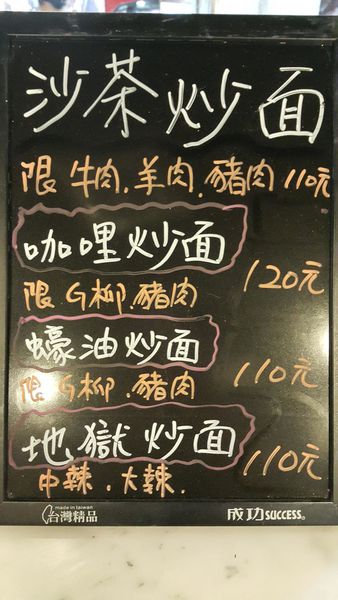 沙茶炒面
限牛肉.羊肉.豬肉110元
咖哩炒面
120元
限G柳.豬肉
蠔油炒面
110元
限G柳.豬肉
地獄炒面
110元
中辣.大辣.
made in taiwan
台灣精品
成功SUCCESS®